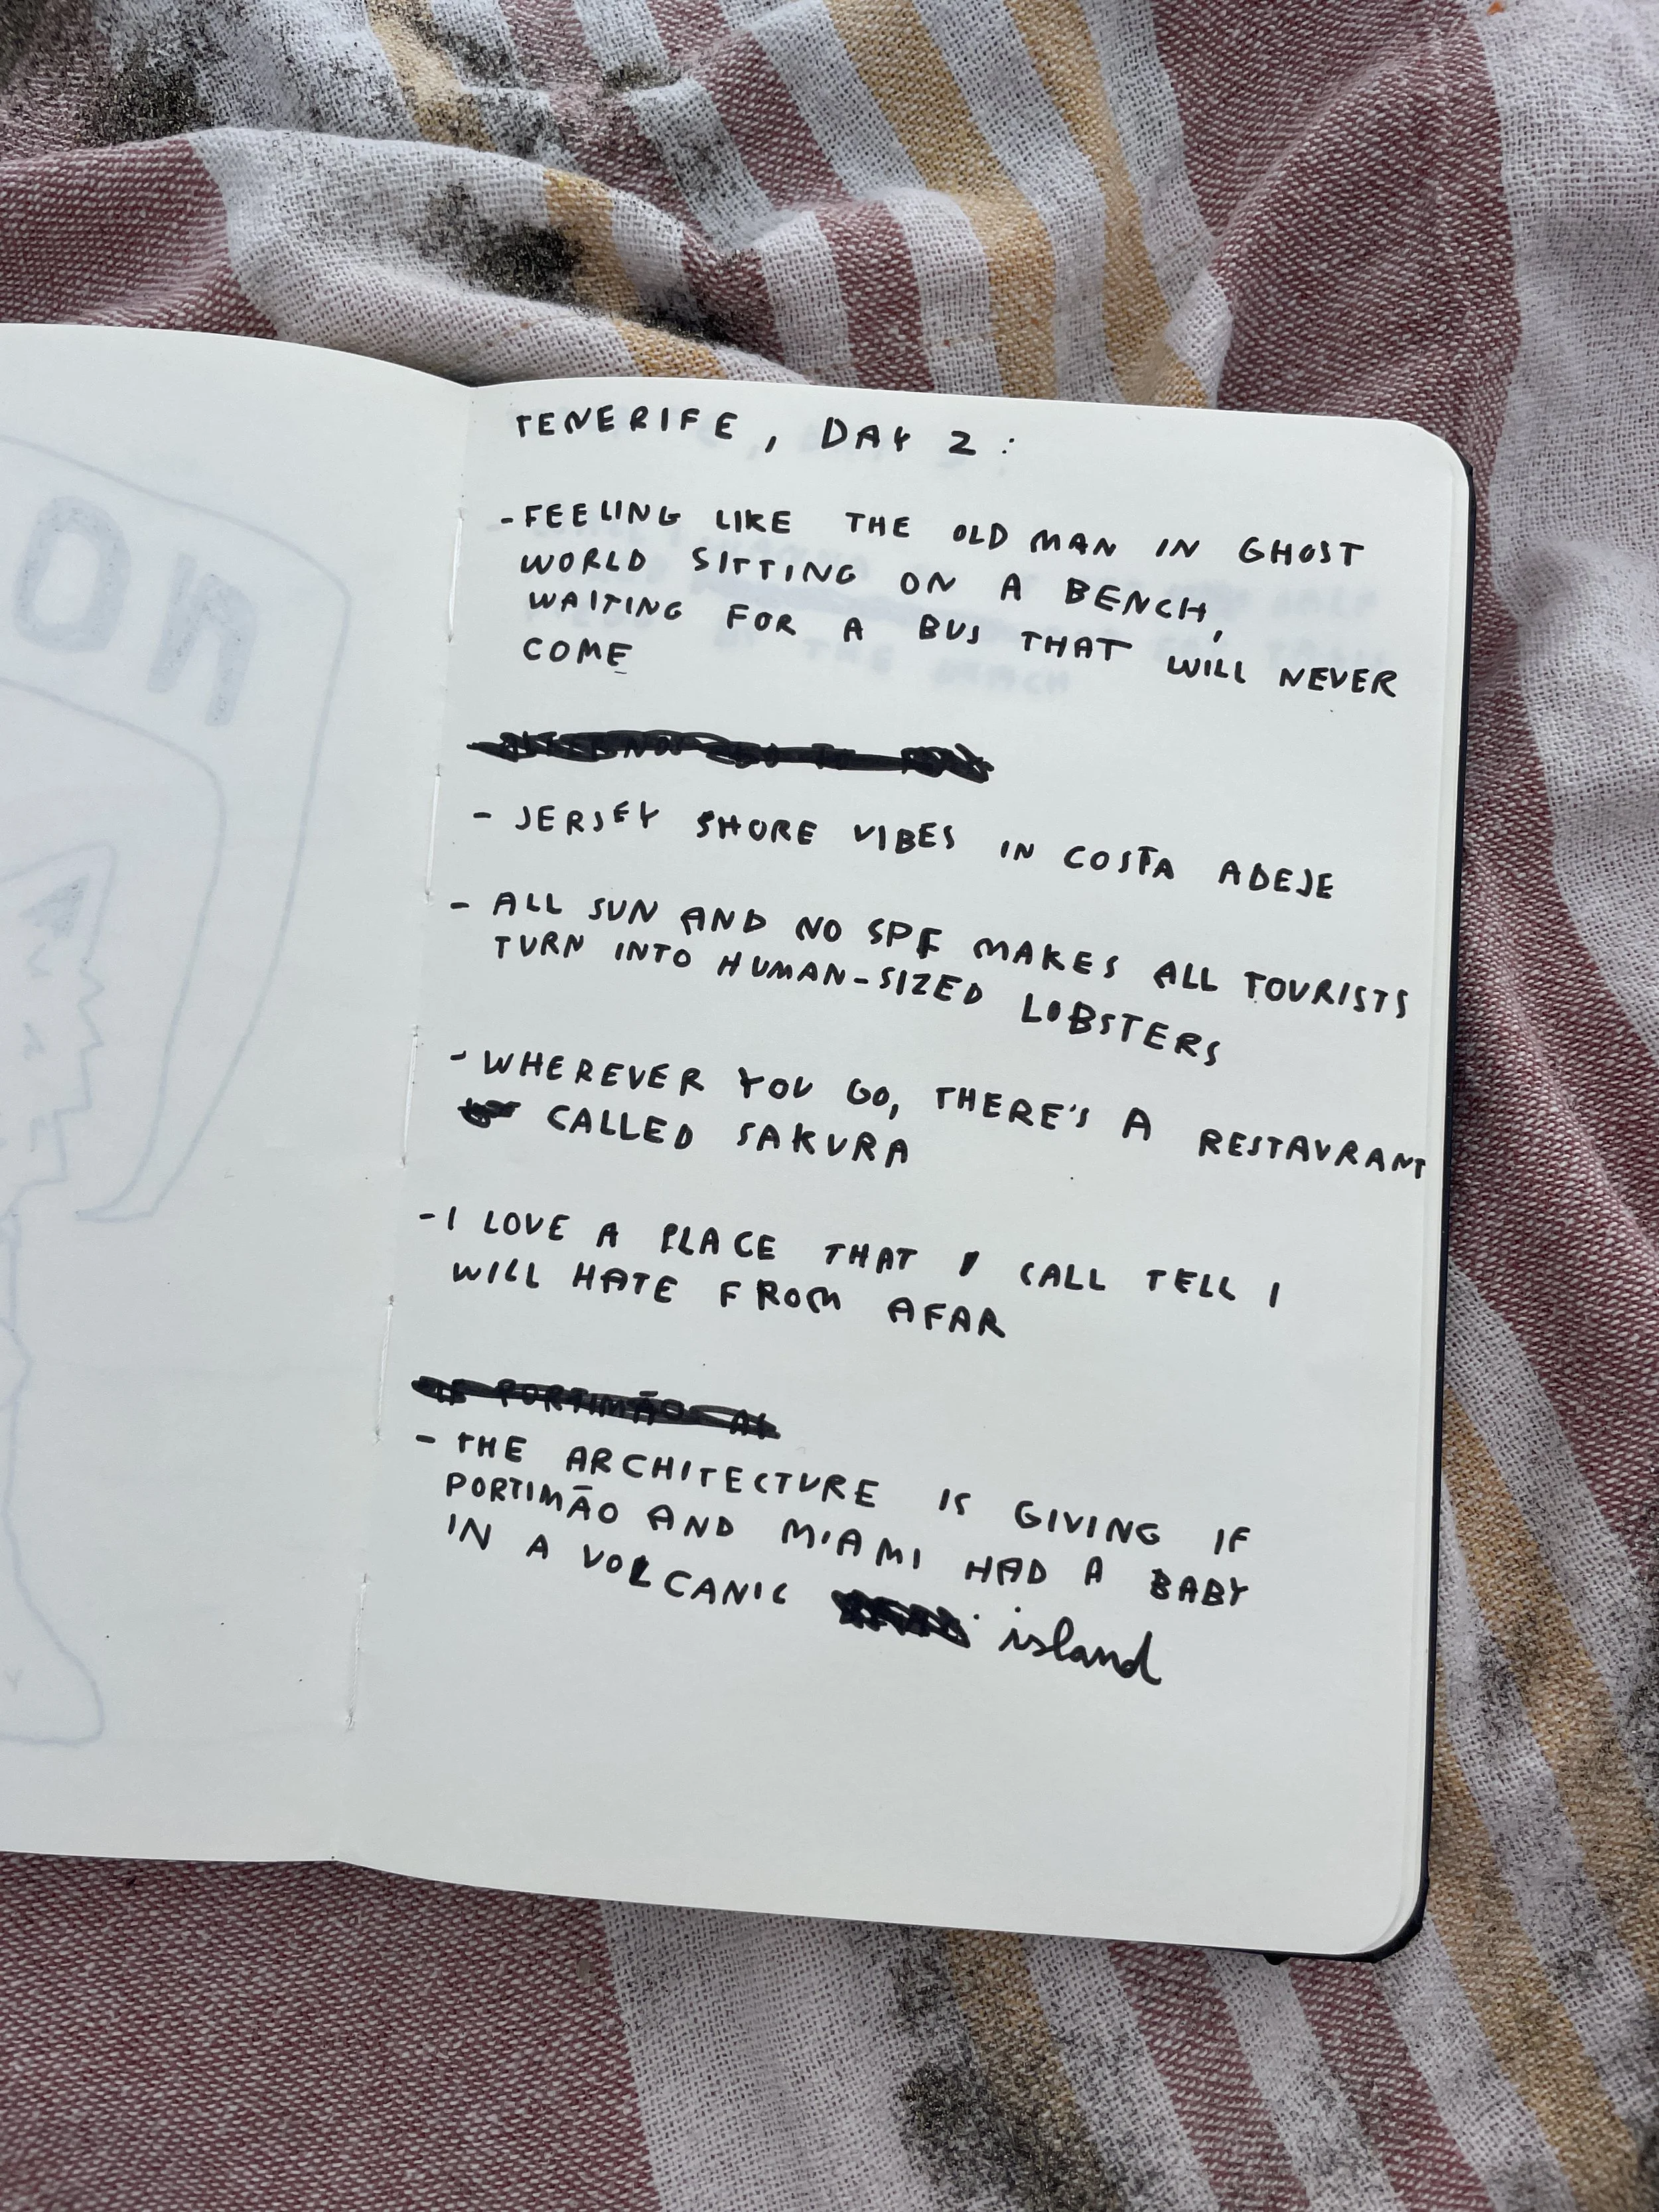 TENERIFE, DAY 2:
- FEELING LIKE THE OLD MAN IN GHOST
WORLD SITTING ON A BENCH,
WAITING FOR A BUS THAT WILL NEVER
COME
- JERSEY SHORE VIBES IN COSTA ADEJE
- ALL SUN AND NO SPF MAKES ALL TOURISTS
TURN INTO HUMAN-SIZED LOBSTERS
- WHEREVER YOU GO, THERE'S A RESTAURANT
CALLED SAKURA
- I LOVE A PLACE THAT I CALL TELL I
WILL HATE FROM AFAR
PORTIMÃO
- THE ARCHITECTURE IS GIVING IF
PORTIMÃO AND MIAMI HAD A BABY
IN A VOLCANIC island